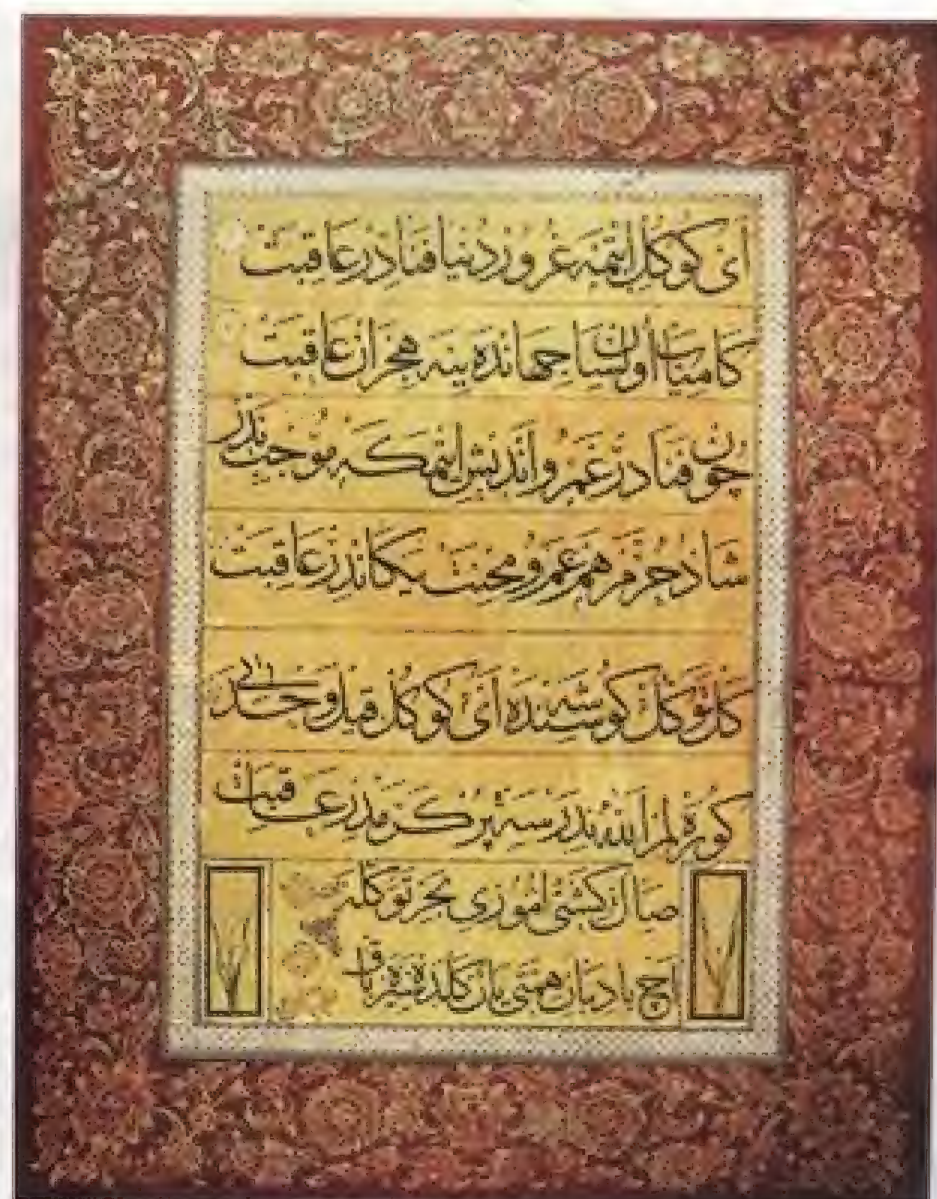 ای کوکل ایتمه غرور دنیا فنادر عاقبت
کامیاب اولسان جهانده ینه هجران عاقبت
چون فنادر غم و اندیش ایتمک موجب ندر
شاد خرم هم غم و محنت یکاندر عاقبت
کل توکل کوشه سنده ای کوکل قیل و
کوره لم الله ندر عاقبت
صال کشتی اموری بحر توکله
آچ بادبان همتی باق